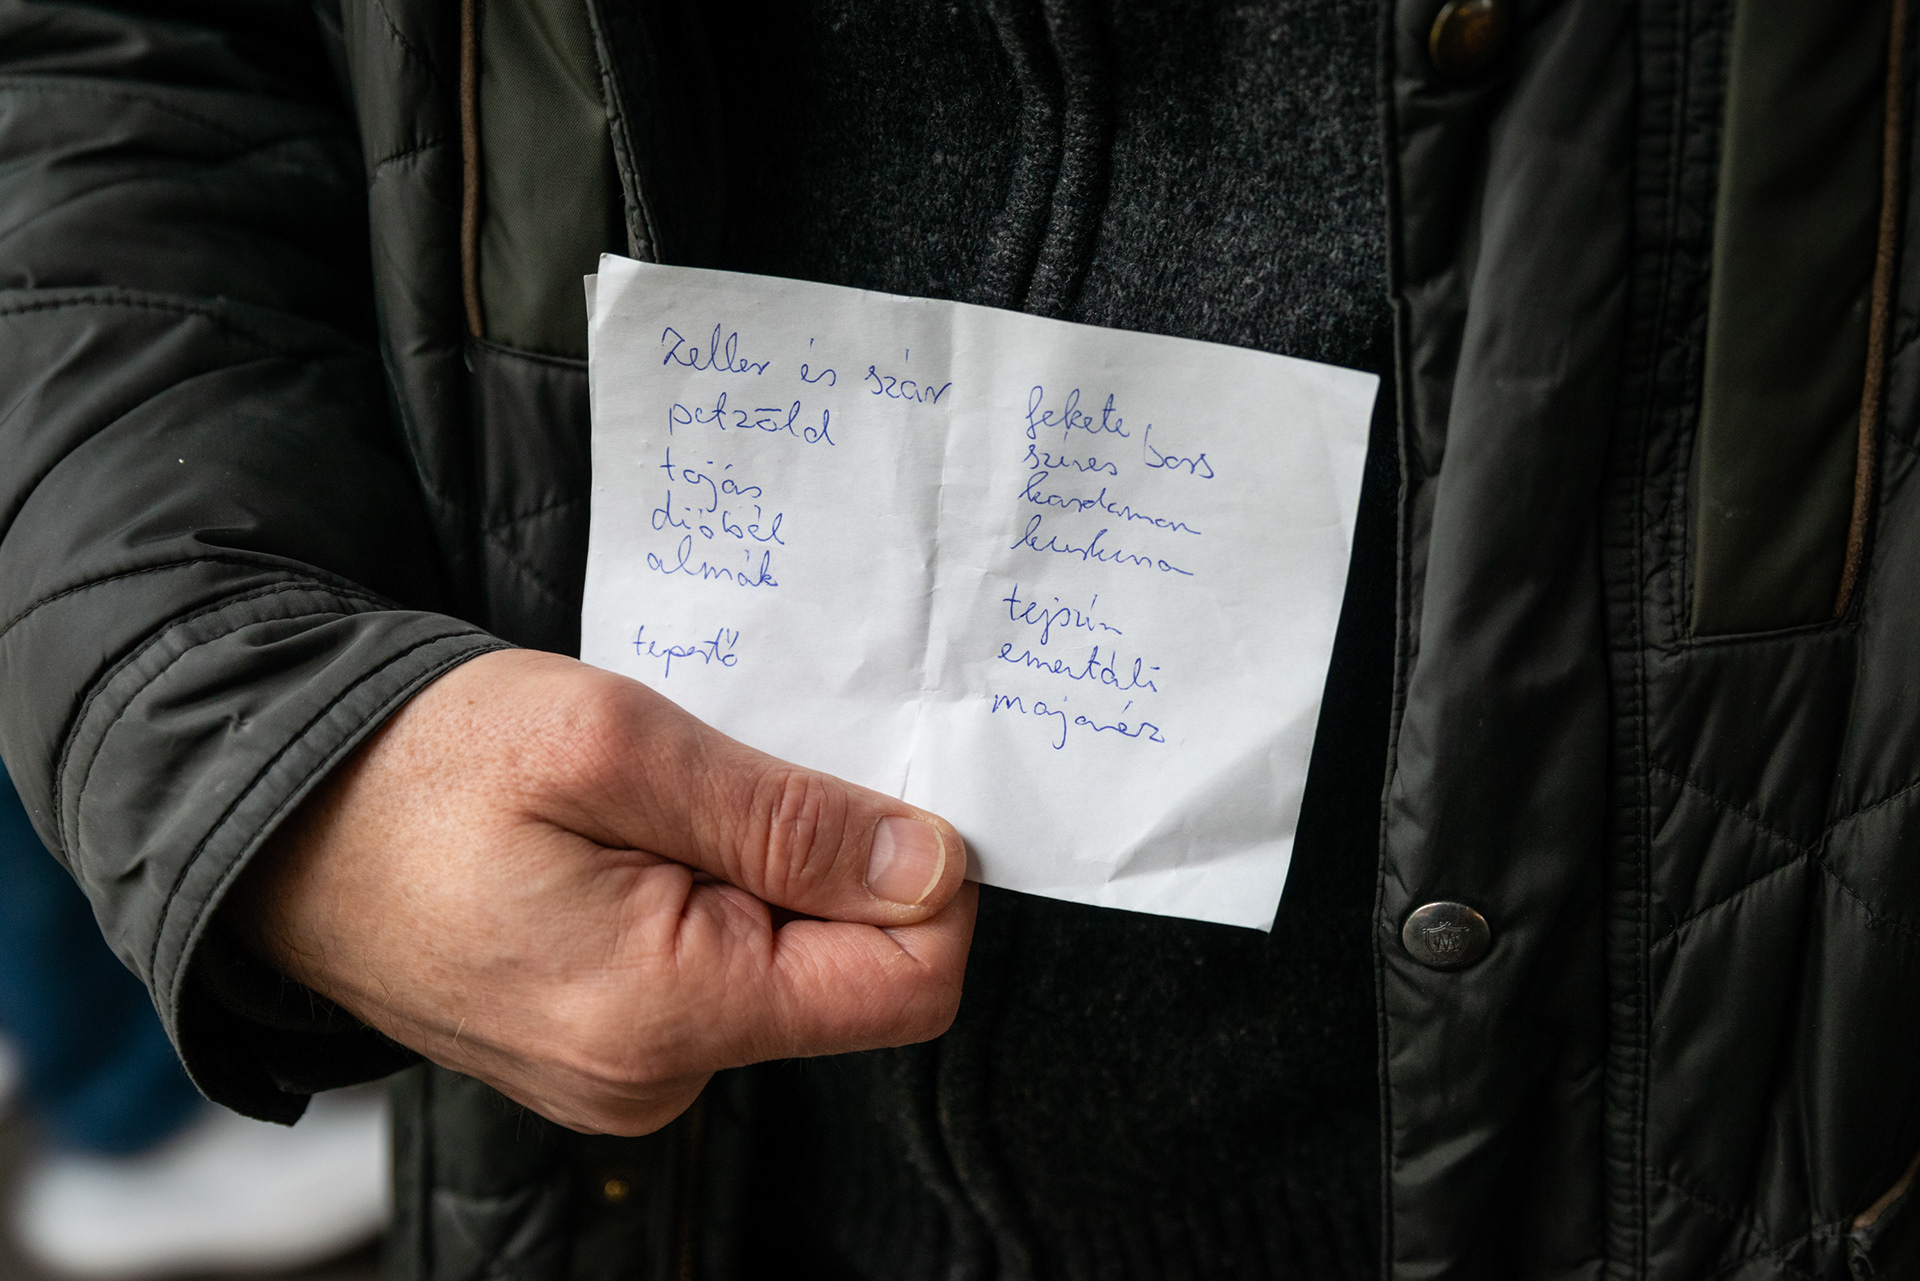 Zeller és szár
petzōld
tojás
dióbél
almák
tepertő
fekete bors
színes
kardamon
kurkuma
tejszín
ementáli
majonéz